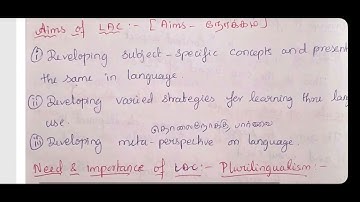 Aims of LAC :- [Aims - நோக்கம்]
(i) Developing subject-specific concepts and present
the same in language.
(ii) Developing varied strategies for learning three lang
use.
தொலைநோக்கு பார்வை
(iii) Developing meta-perspective on language.
Need & Importance of LAC :- Plurilingualism -